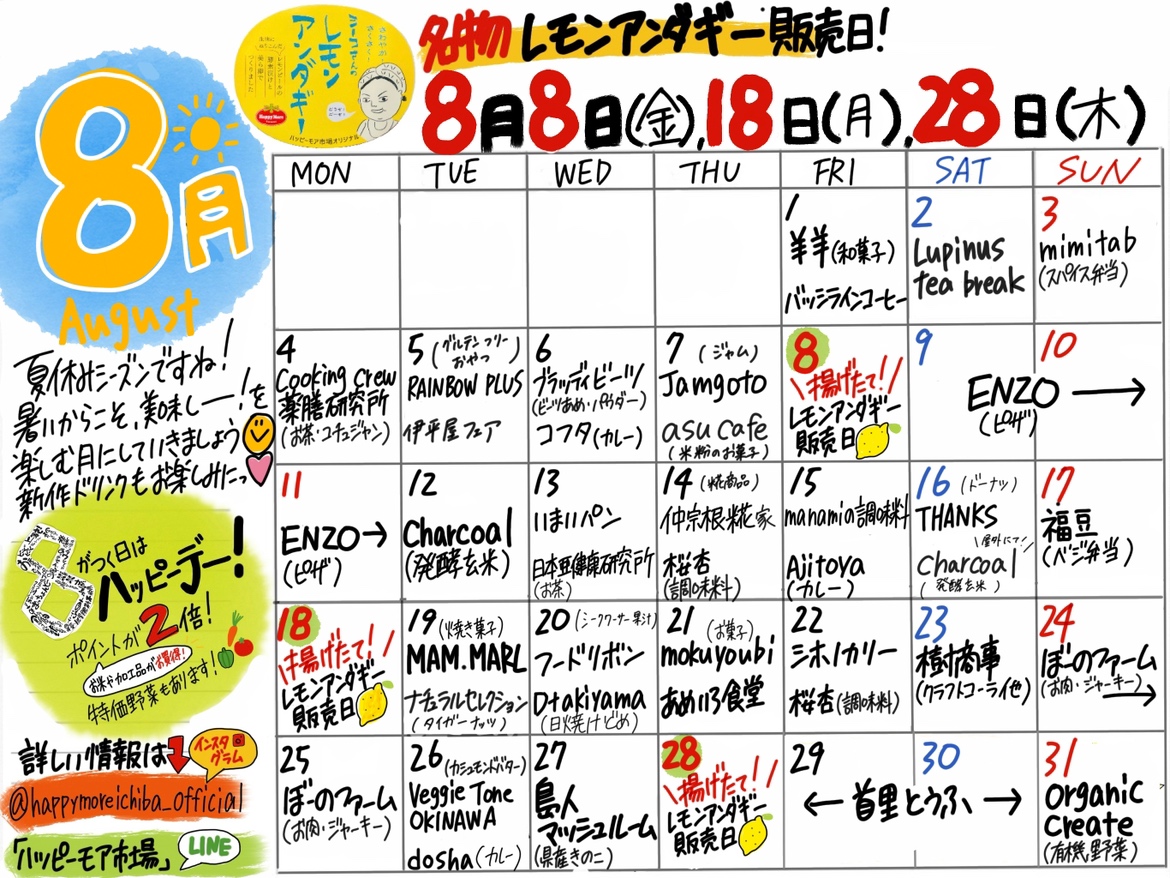 名物 レモンアンダギー販売日!
8月8日(金),18日(月),28日(木)
レモン
アンダギー
Happy More
ハッピーモア市場オリジナル
8月
August
夏休みシーズンですね!
暑いからこそ、美味しーー!を
楽しむ月にしていきましょう
新作ドリンクもお楽しみたっ
8がつく日は
ハッピーデー!
ポイントが2倍!
お米や加工品がお買得!
特価野菜もあります!
詳しい情報は
インスタグラム
@happymoreichiba_official
「ハッピーモア市場」
LINE
MON TUE WED THU FRI SAT SUN
1
羊羊(和菓子)
バッシラインコーヒー
2
Lupinus
tea break
3
mimitab
(スパイス弁当)
4
Cooking crew
薬膳研究所
(お茶・コチュジャン)
5 (グルテンフリー
おやつ)
RAINBOW PLUS
伊平屋フェア
6
ブラッディビーツ
(ビーツあめ・パウダー)
コフタ(カレー)
7 (ジャム)
Jamgoto
asu cafe
(米粉のお菓子)
8
\揚げたて!/
レモンアンダギー
販売日
9
10
ENZO →
(ピザ)
11
ENZO→
(ピザ)
12
Charcoal
(発酵玄米)
13
いまいパン
日本亜健康研究所
(お茶)
14 (糀商品)
仲宗根糀家
桜杏
(調味料)
15
manamiの調味料
Ajitoya
(カレー)
16 (ドーナツ)
THANKS
\屋外にて!/
Charcoal
(発酵玄米)
17
福豆
(ベジ弁当)
18
\揚げたて!/
レモンアンダギー
販売日
19 (焼き菓子)
MAM.MARL
ナチュラルセレクション
(タイガーナッツ)
20 (シークワーサー果汁)
フードリボン
D+akiyama
(日焼けどめ)
21 (お菓子)
mokuyoubi
あめいろ食堂
22
シホノカリー
桜杏(調味料)
23
樹商事
(クラフトコーラ他)
24
ぼーのファーム
(お肉・ジャーキー)
→
25
ぼーのファーム
(お肉・ジャーキー)
26 (カシューナッツバター)
Veggie Tone
OKINAWA
dosha(カレー)
27
島人
マッシュルーム
(県産きのこ)
28
\揚げたて!/
レモンアンダギー
販売日
29
30
← 首里とうふ →
31
organic
create
(有機野菜)